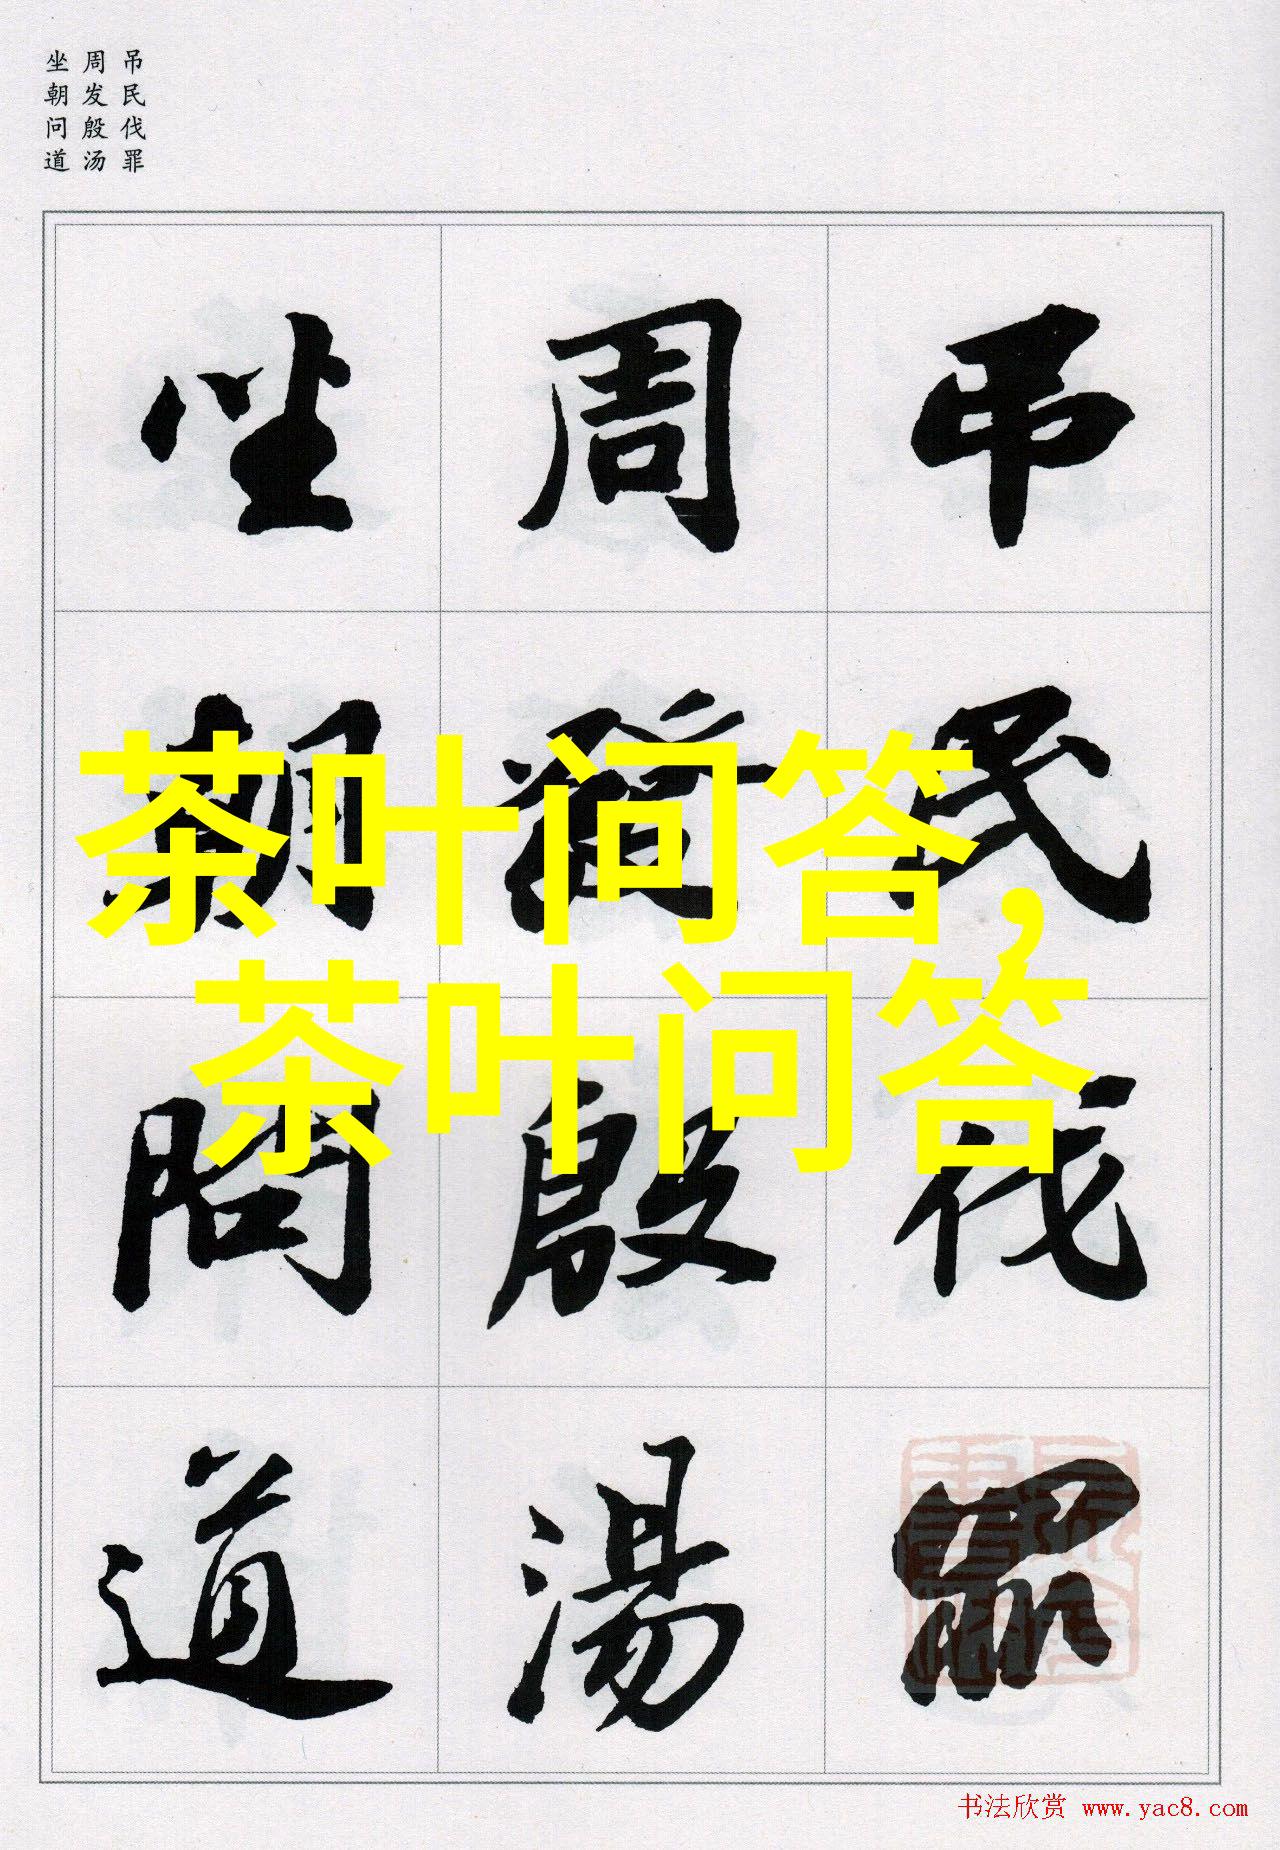 吊民伐罪
周发殷汤
坐朝问道
吊民伐罪
周發殷湯
坐朝問道
茶叶问答，
茶叶问答
书法欣赏 www.yac8.com